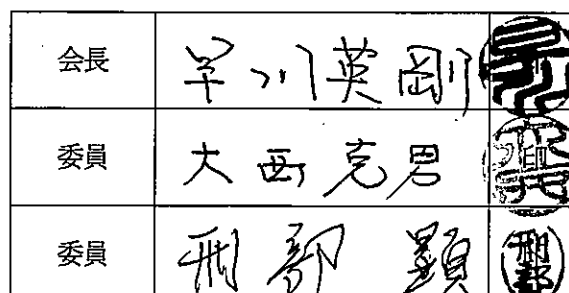 会長 早川英剛
委員 大西克男
委員 刑部 顕 刑部